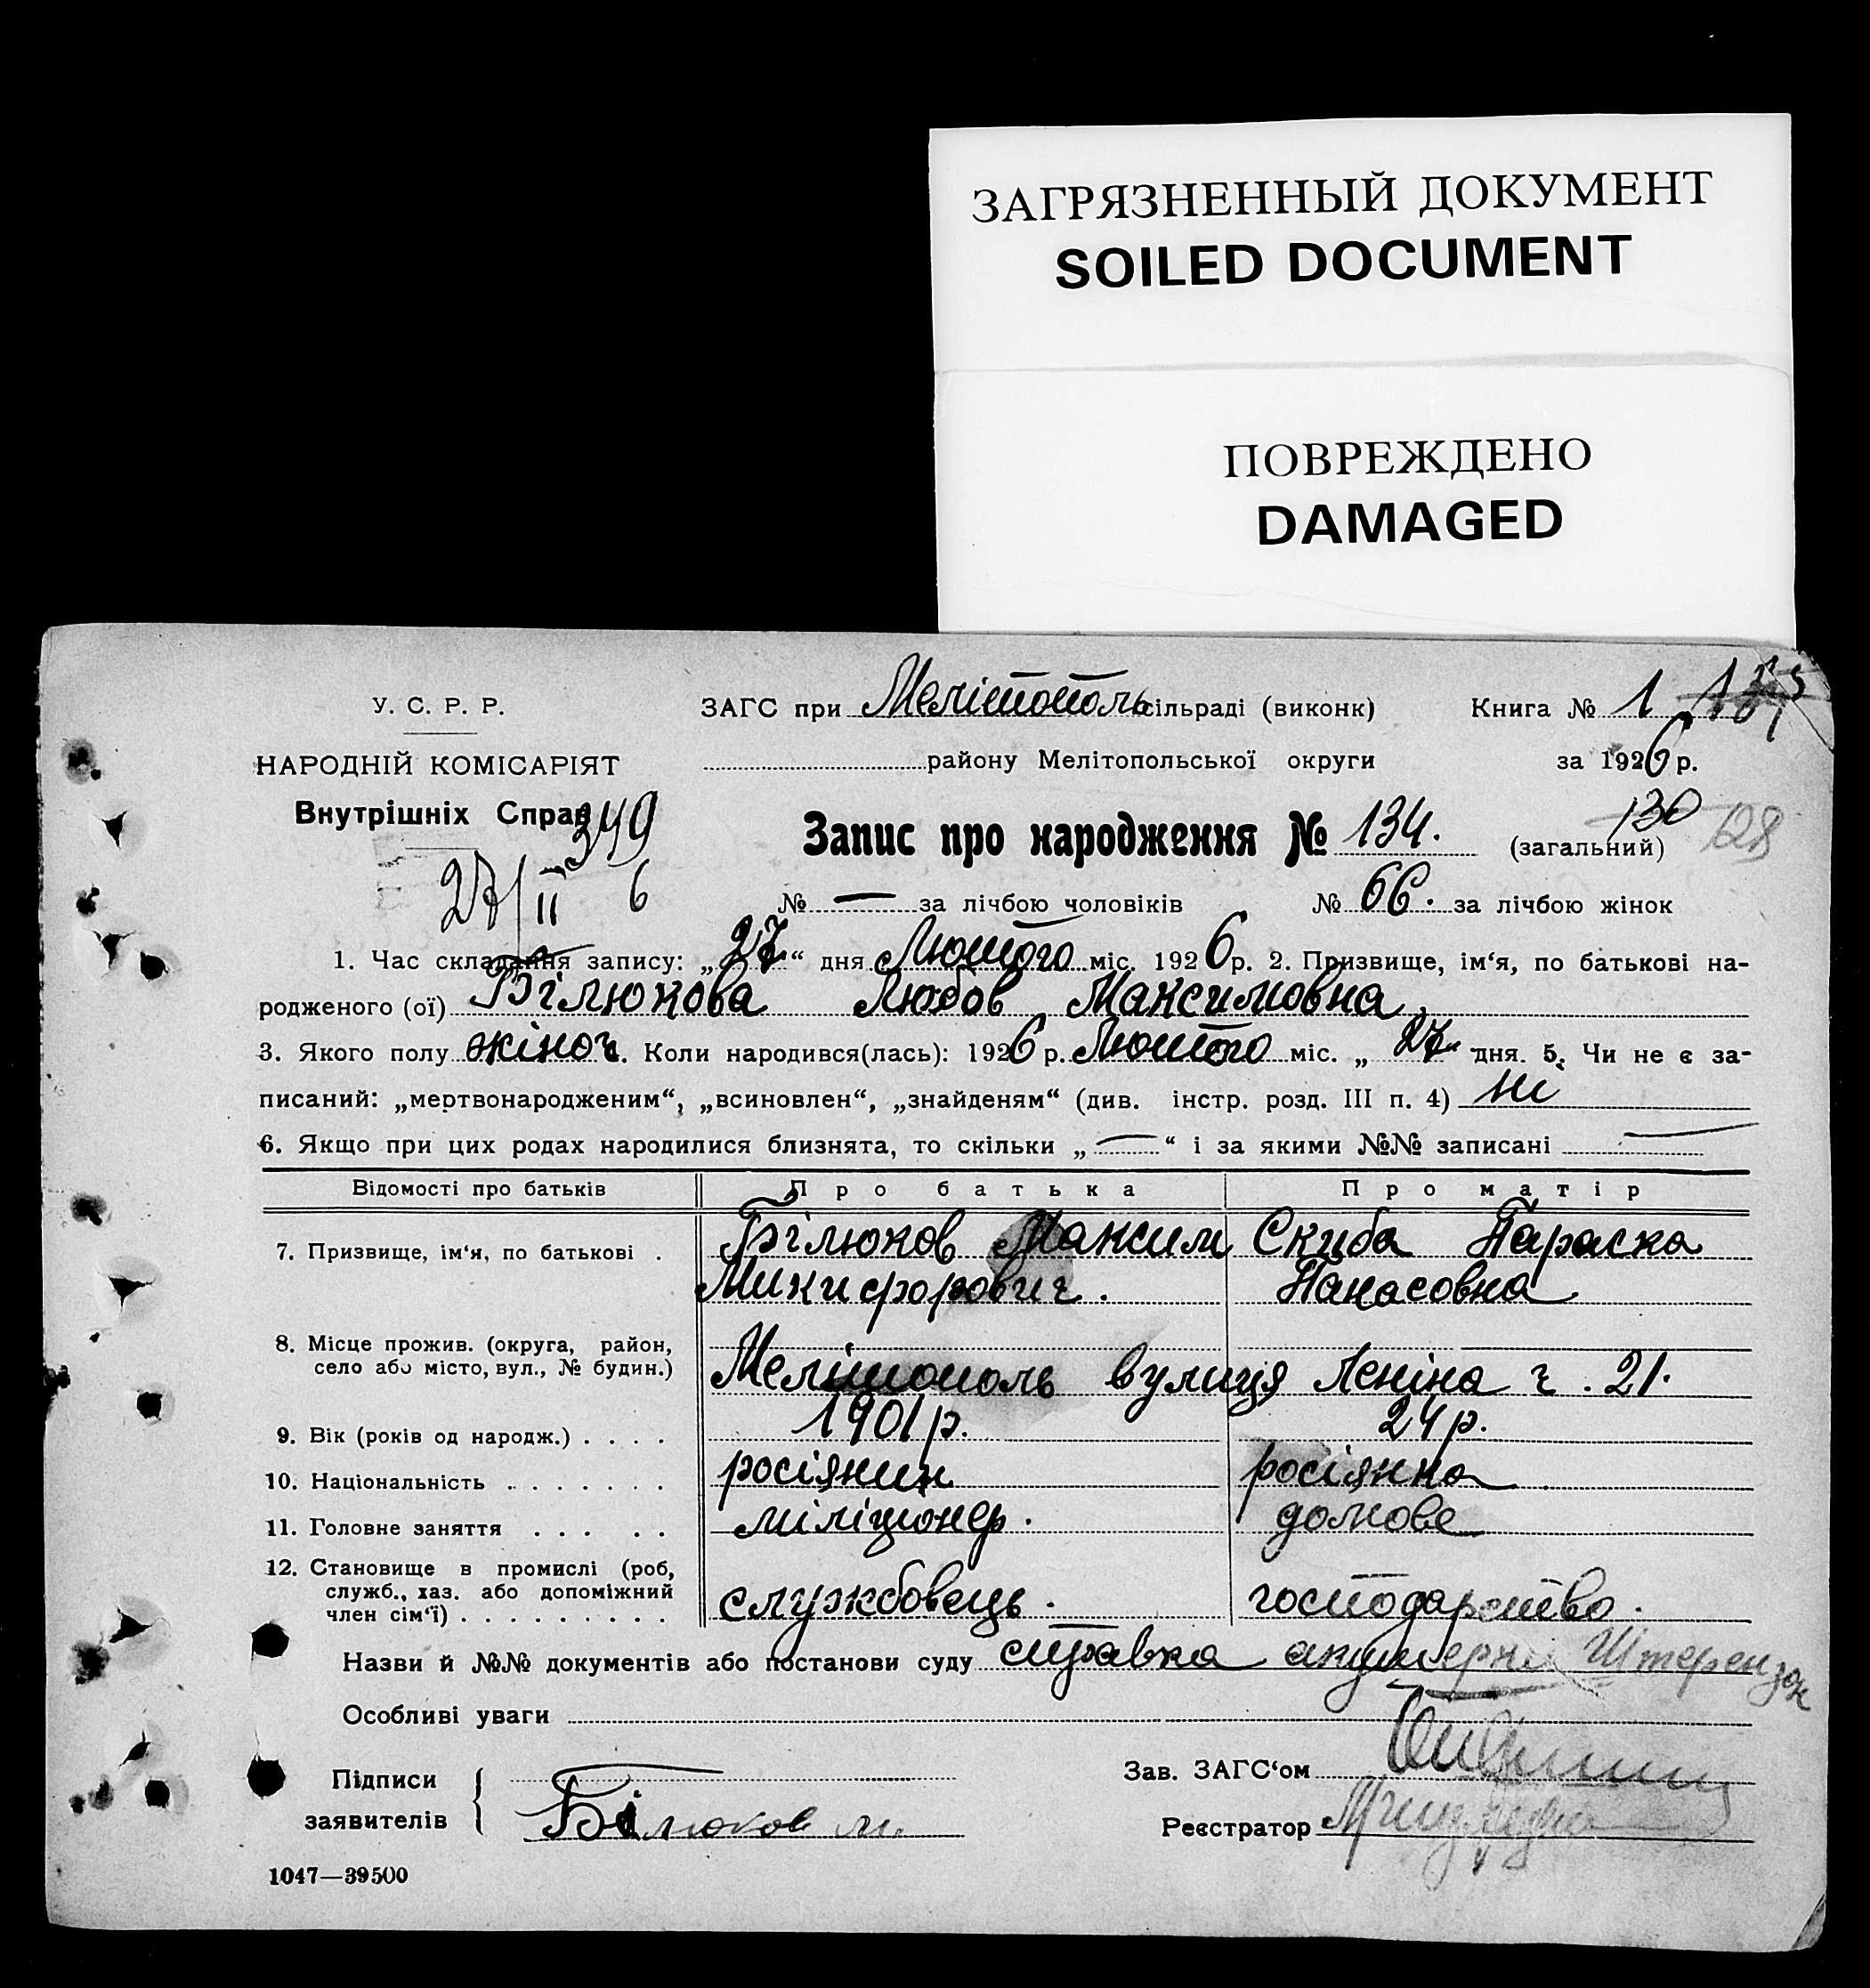 ЗАГРЯЗНЕННЫЙ ДОКУМЕНТ
SOILED DOCUMENT
ПОВРЕЖДЕНО
DAMAGED
У. С. Р. Р.
ЗАГС при Мелітополь сільраді (виконк)
Книга № 1
НАРОДНІЙ КОМІСАРІЯТ
району Мелітопольської округи
за 1926 р.
Внутрішніх Справ
349
27/II 6
Запис про народження № 134. (загальний)
130
128
№ — за лічбою чоловіків
№ 66. за лічбою жінок
1. Час складання запису: „27“ дня Лютого міс. 1926 р. 2. Призвище, ім‘я, по батькові на-
родженого (ої) Білюкова Любов Максимовна
3. Якого полу жіноч. Коли народився(лась): 1926 р. Лютого міс. „27“ дня. 5. Чи не є за-
писаний: „мертвонародженим“, „всиновлен“, „знайденям“ (див. інстр. розд. III п. 4) ні
6. Якщо при цих родах народилися близнята, то скільки „—“ і за якими №№ записані —
Відомості про батьків
Про батька
Про матір
7. Призвище, ім‘я, по батькові .
Білюков Максим
Микифорович.
Скиба Параска
Панасовна
8. Місце прожив. (округа, район,
село або місто, вул., № будин.)
Мелітополь вулиця Леніна ч. 21.
9. Вік (років од народж.) . . . .
1901 р.
24 р.
10. Національність . . . . . . .
росіянин
росіянка
11. Головне заняття . . . . .
міліціонер.
домове
12. Становище в промислі (роб,
служб., хаз. або допоміжний
член сім‘ї) . . . . . . . . .
службовець.
господарство.
Назви й №№ документів або постанови суду справка акушерки Штерензон
Особливі уваги
Підписи
заявителів
Білюков м.
Зав. ЗАГС‘ом
Реєстратор
1047—39500